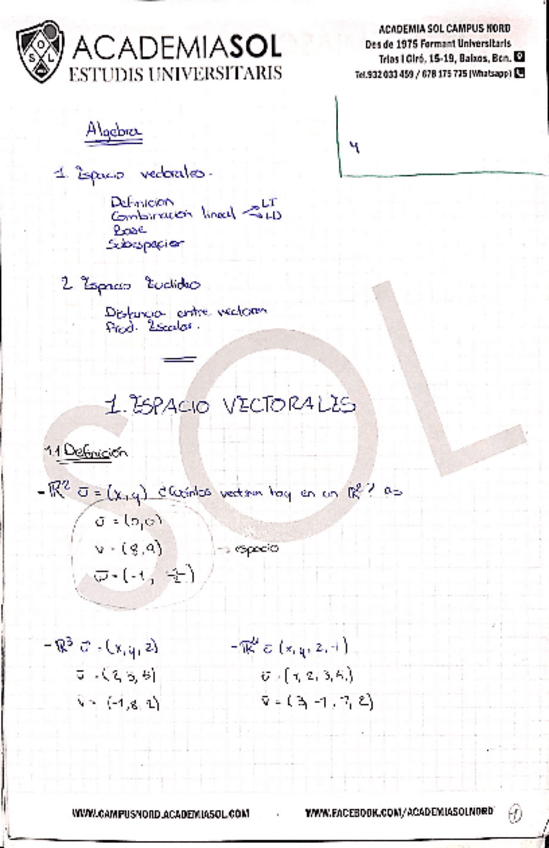 ACADEMIASOL
ESTUDIS UNIVERSITARIS
ACADEMIA SOL CAMPUS NORD
Des de 1975 Formant Universitaris
Trias i Giró, 15-19, Baixos, Bcn.
Tel. 932 033 459 / 678 175 775 (Whatsapp)
Algebra
4
1. Espacio vectorales.
Definicion
Combinación lineal → LI
→ LD
Base
Subespacios
2 Espacio Euclideo
Distancia entre vectores
Prod. Escalar.
SOL
1. ESPACIO VECTORALES
1.1 Definición
- ℝ² ū = (x,y) ¿Cuántos vectores hay en un ℝ²? ∞
ū = (0,0)
v = (8,9)
→ espacio
w̄ = (-1, -½)
- ℝ³ ū = (x, y, z)
ū = (2, 3, 5)
v = (-1, 8, 2)
- ℝ⁴ ū (x, y, z, t)
ū = (1, 2, 3, 4)
v̄ = (3, -1, 7, 2)
WWW.CAMPUSNORD.ACADEMIASOL.COM
WWW.FACEBOOK.COM/ACADEMIASOLNORD
1